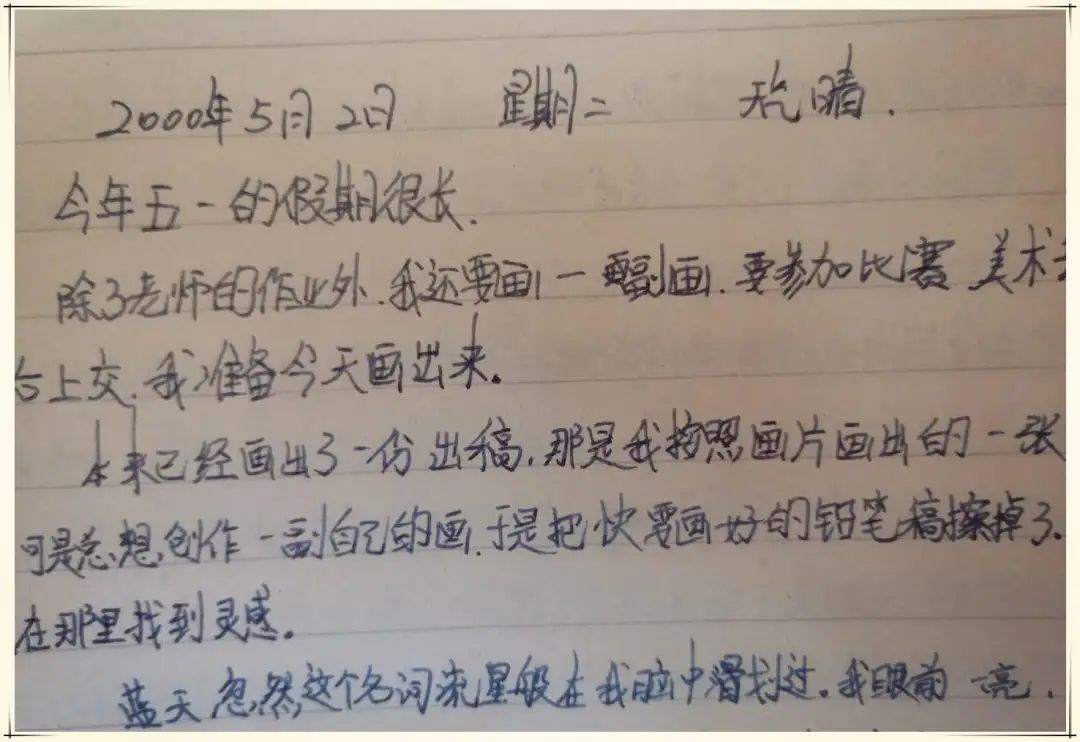 2000年5月2日 星期二 天气 晴.
今年五一的假期很长.
除了老师的作业外.我还要画一副画.要参加比赛 美术
上交.我准备今天画出来。
本来已经画出了一份出稿.那是我按照画片画出的一张
可是总想创作一副自己的画.于是把快要画好的铅笔稿擦掉了.
在那里找到灵感。
蓝天忽然这个名词流星般在我脑中滑划过。我眼前一亮.